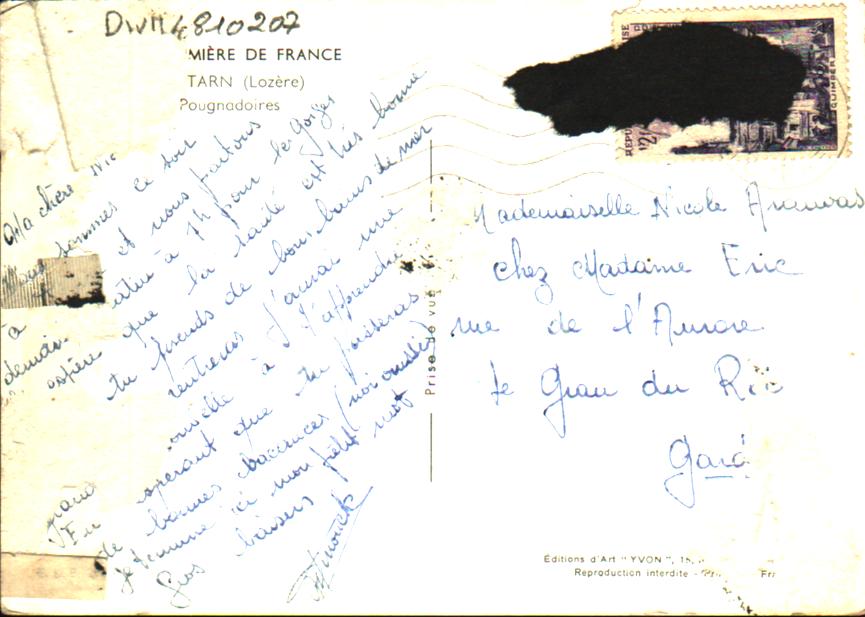 DWM4810207
MIÈRE DE FRANCE
TARN (Lozère)
Pougnadoires
Ma chère Nic
Nous sommes ce soir
à et nous partons
demain matin à 7h pour les Gorges
espère que la santé est très bonne
tu prends de bons bains de mer
rentrerons J'aurai une
à t'apprendre
grand
En espérant que tu passeras
de bonnes vacances (moi aussi)
je termine ici mon petit mot
Gros baisers
Mademoiselle Nicole
chez Madame Eric
rue de l'Aurore
le Grau du Roi
Gard
Prise de vue
RÉPU
12f
QUIMPER
Éditions d'Art "YVON", 15,
Reproduction interdite -